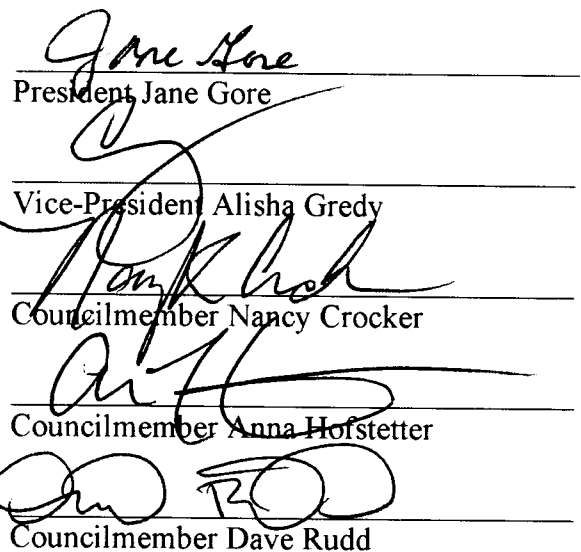 Jane Gore
President Jane Gore
Vice-President Alisha Gredy
Councilmember Nancy Crocker
Councilmember Anna Hofstetter
Councilmember Dave Rudd